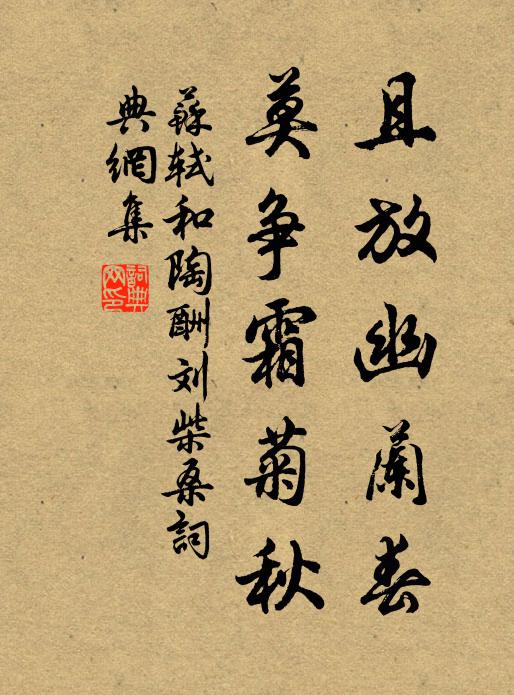 且放幽蘭春
莫争霜菊秋
蘇軾和陶酬刘柴桑詞
典網集
詞典網印